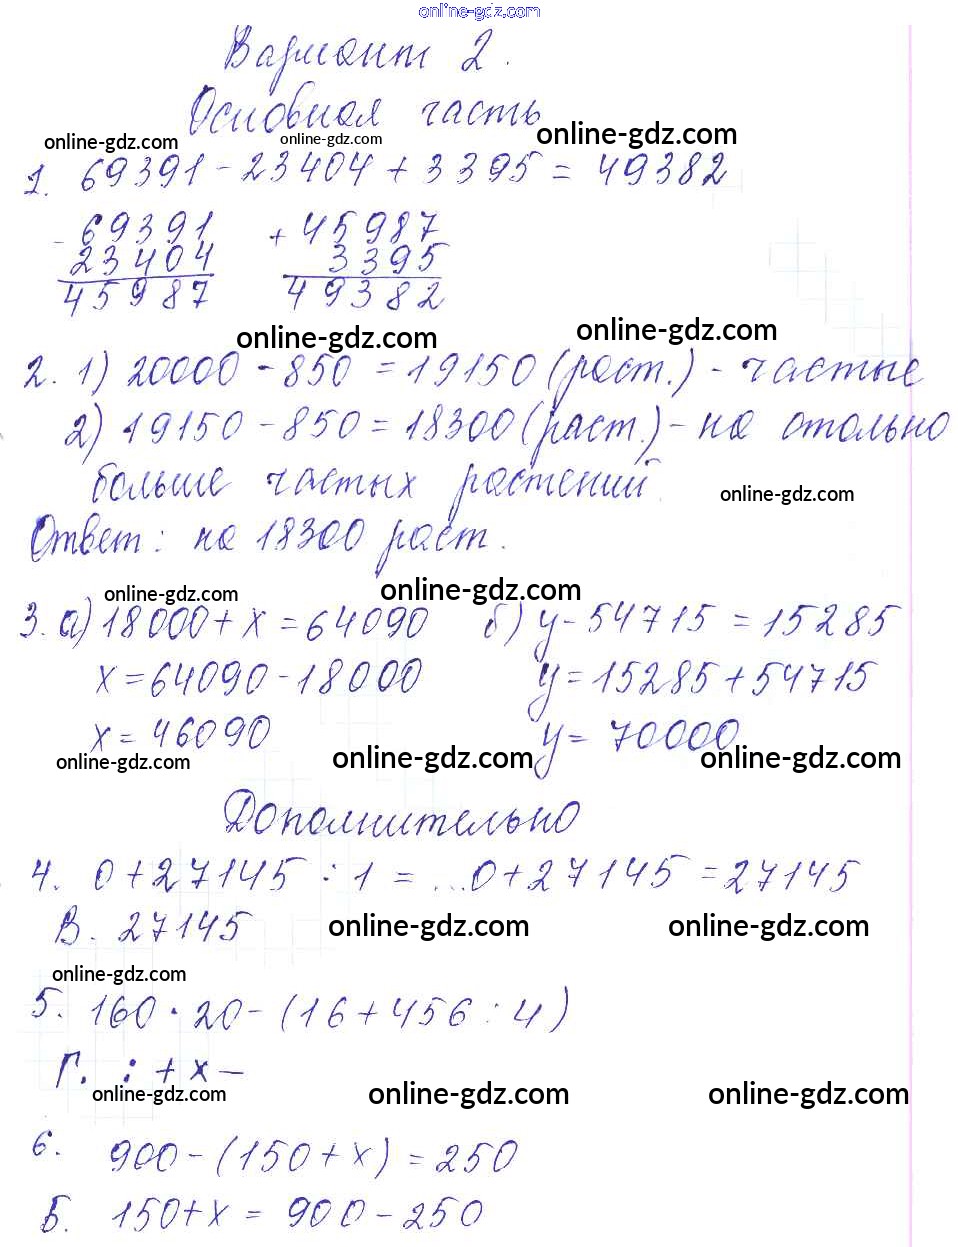 online-gdz.com
Вариант 2.
Основная часть
online-gdz.com online-gdz.com online-gdz.com
1. 69391 - 23404 + 3395 = 49382
- 69391 + 45987
23404 3395
45987 49382
online-gdz.com online-gdz.com
2. 1) 20000 - 850 = 19150 (раст.) - частые
2) 19150 - 850 = 18300 (раст.) - на столько
больше частых растений.
online-gdz.com
Ответ: на 18300 раст.
online-gdz.com online-gdz.com
3. а) 18000 + x = 64090 б) y - 54715 = 15285
x = 64090 - 18000 y = 15285 + 54715
x = 46090 y = 70000
online-gdz.com online-gdz.com online-gdz.com
Дополнительно
4. 0 + 27145 : 1 = ...0 + 27145 = 27145
В. 27145 online-gdz.com online-gdz.com
online-gdz.com
5. 160 · 20 - (16 + 456 : 4)
Г. : + x -
online-gdz.com online-gdz.com online-gdz.com
6. 900 - (150 + x) = 250
Б. 150 + x = 900 - 250